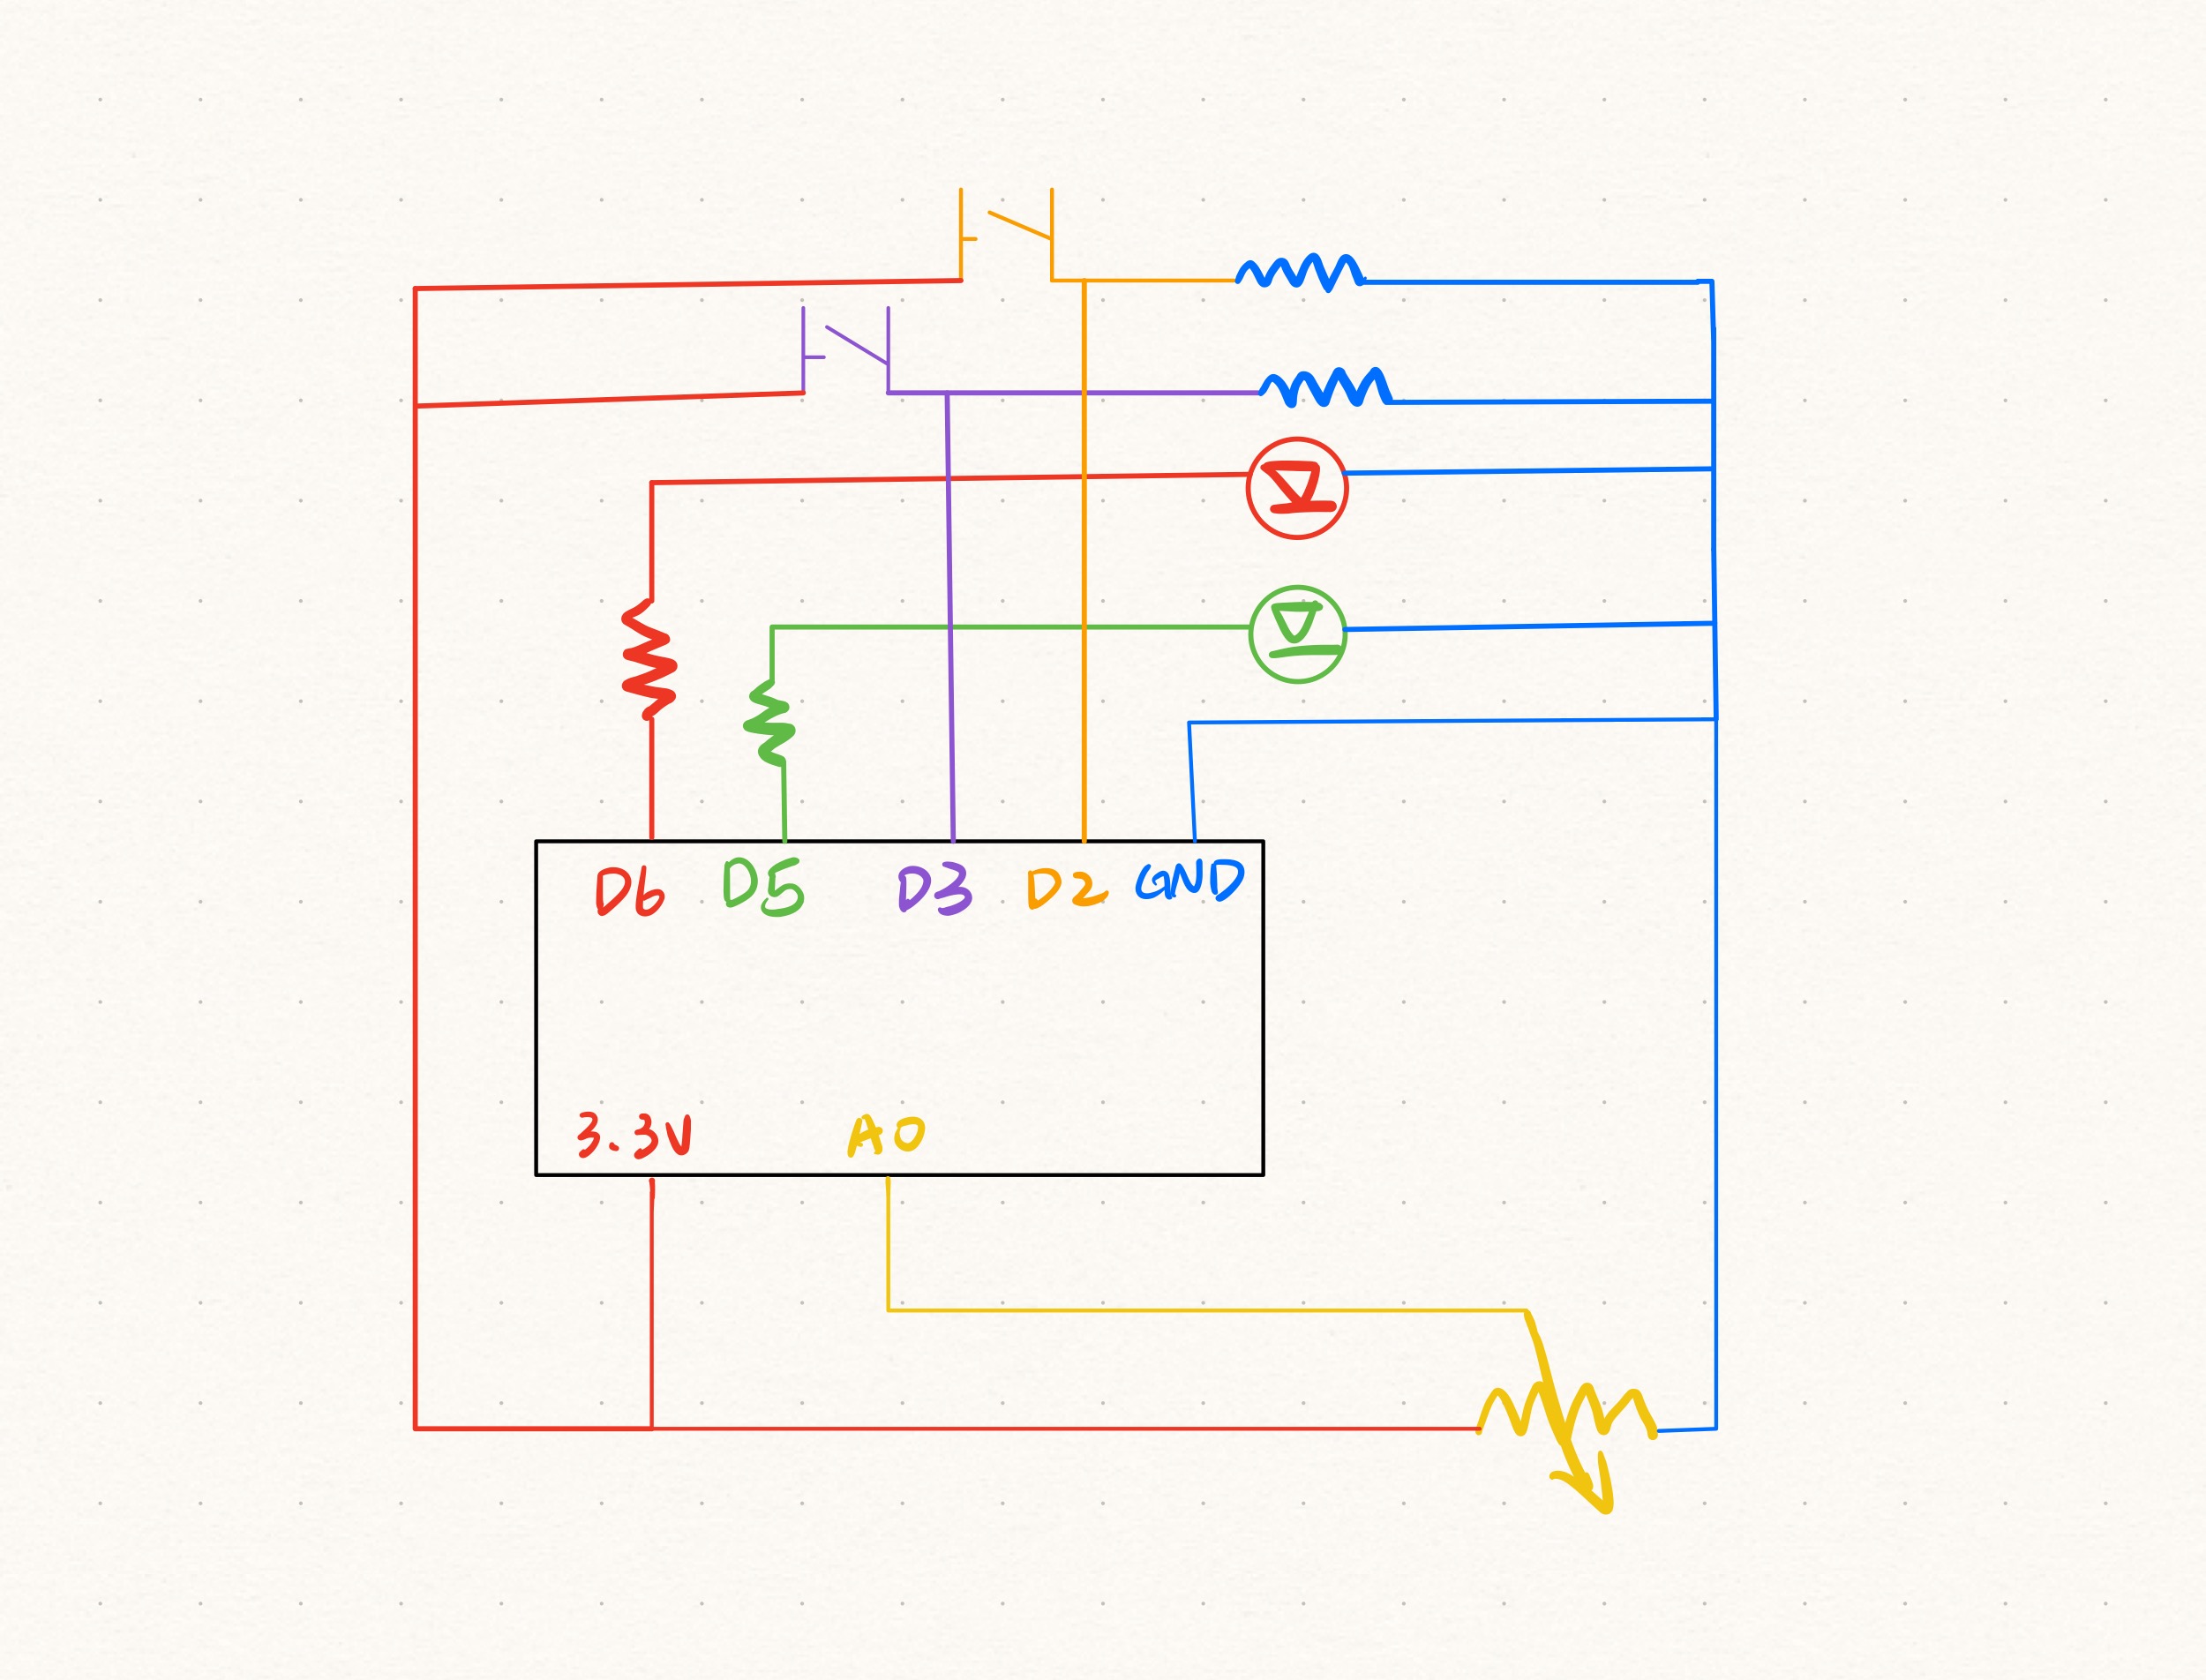 D6 D5 D3 D2 GND
3.3V A0